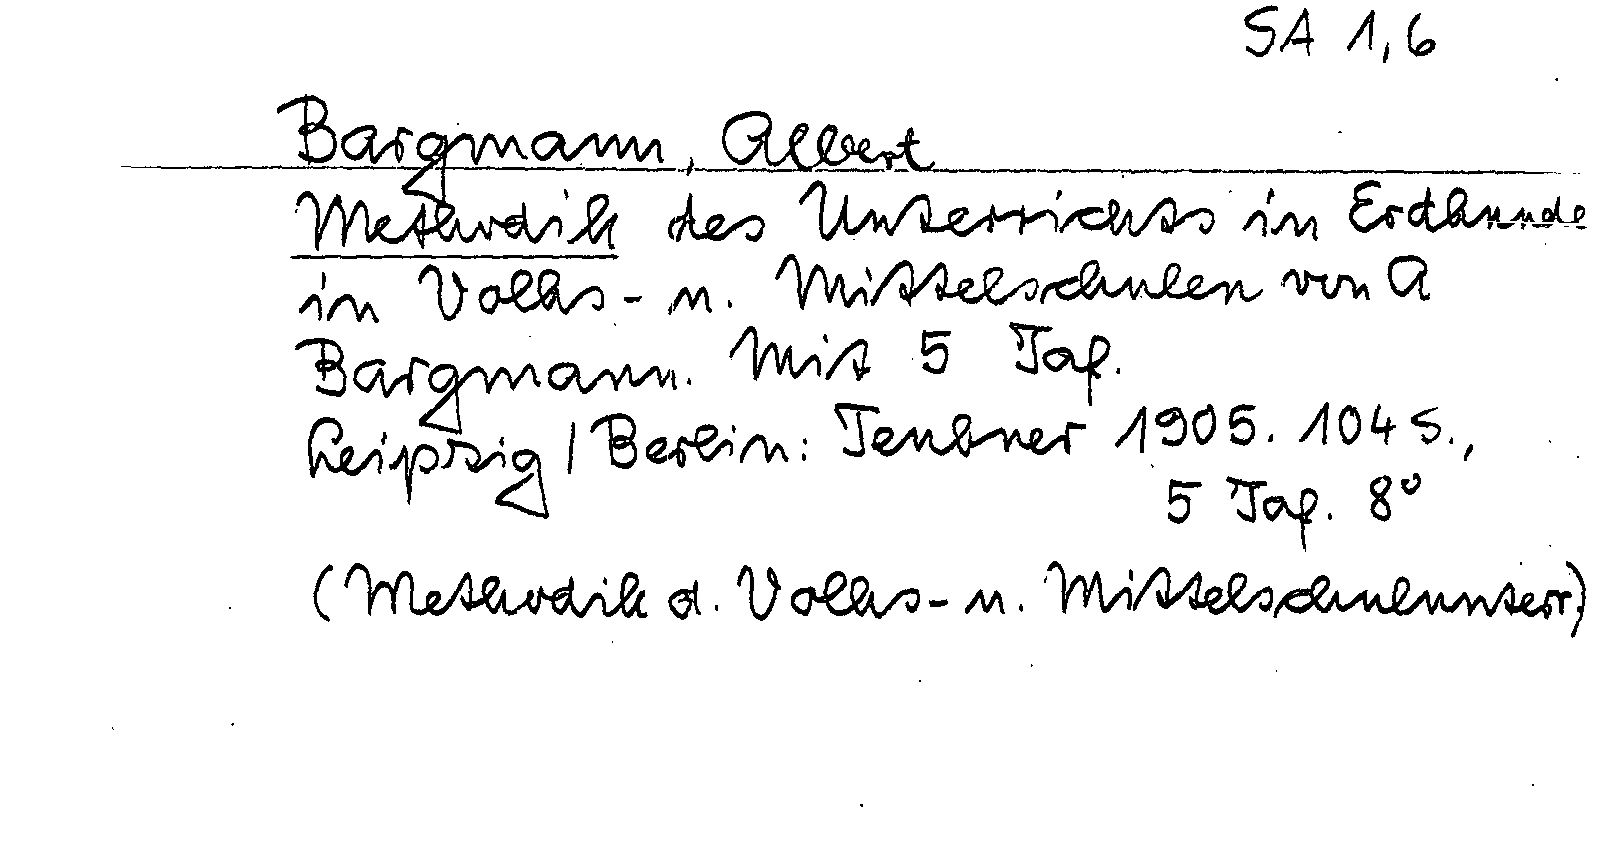 SA 1,6
Bargmann, Albert
Methodik des Unterrichts in Erdkunde
in Volks- u. Mittelschulen von A
Bargmann. Mit 5 Taf.
Leipzig / Berlin: Teubner 1905. 104 S.,
5 Taf. 8°
(Methodik d. Volks- u. Mittelschulunterr.)